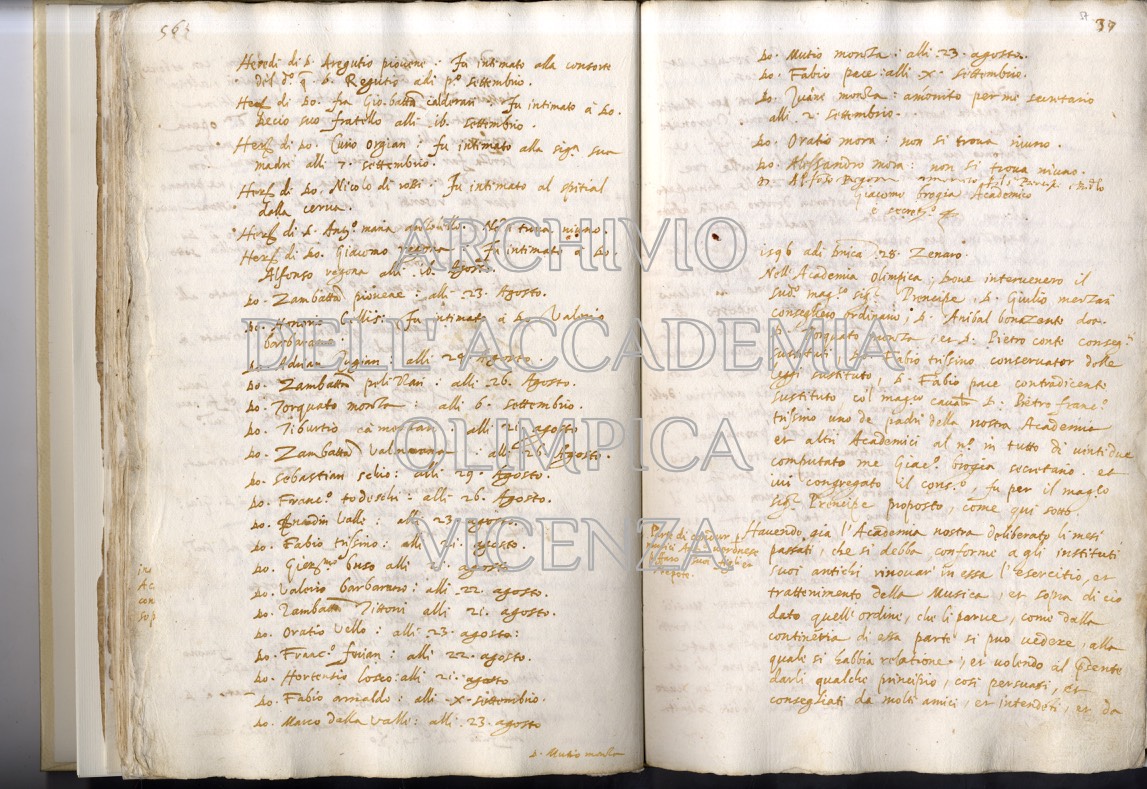 565
Heredi di D. Aregutio piovene: Fu intimato alla consorte
del d.º q. D. Regutio adi p.º settembrio.
Hered di Do. fra Gio. batta calderari: Fu intimato à Do.
Decio suo fratello alli 16. settembrio.
Hered di Do. Curio orgian: fu intimato alla sig.ra sua
madri alli 7. settembrio.
Hered di Do. Nicolo di rossi. Fu intimato al spitial
dalla cerva.
Hered di D. Ant.º maria. No si trova niuno.
Hered di Do. Giacomo ragona: Fu intimato à Do.
Alfonso ragona alli 16. Agosto.
Do. Zambatta piovene: alli 23. Agosto.
Do. Honorio Bellis: Fu intimato à D. Valerio
barbarano:
Do. Adrian: alli 29. Agosto.
Do. Zambatta: alli 26. Agosto.
Do. Torquato monza: alli 6. settembrio.
Do. Tiburtio: alli 21. agosto
Do. Zambatta Valmarana: alli 26. Agosto.
Do. Sebastian schio: alli 29. Agosto.
Do. Franc.º todeschi: alli 26. Agosto.
Do. Valli: alli 23. agosto.
Do. Fabio trissino: alli 21. agosto.
Do. Gier.mo buso alli agosto
Do. Valerio barbarano: alli 22. agosto.
Do. Zambatta Tittoni alli 21. agosto.
Do. Oratio Vello: alli 23. agosto:
Do. Franc.º: alli 22. agosto.
Do. Hortensio losco: alli 21. agosto
Do. Fabio arnaldo: alli x settembrio.
Do. Marco dalla Valli: alli 23. agosto
D. Mutio monza
57
37
Do. Mutio monza: alli 23. agosto.
Do. Fabio pace: alli x. settembrio.
Do. monza: amonito per mi secretario
alli 2. settembrio.
Do. Oratio mora: non si trova niuno.
Do. Alessandro mora: non si trova niuno.
Do. Alfonso Ragona
giacomo brogia Academico
e secret.º
1596 adi Dnica 28. Zenaro.
Nell'Academia Olimpica, Dove intervenero il
sud.º mag.co sig.r Prencipe, D. Giulio merzari
consegliero ordinario, D. Anibal bonazonte doa.
D. Torquato monza, et D: Pietro conti conseg.ri
sustituti, D. Fabio trissino conservator delle
leggi sustituto, D. Fabio pace contradicente
sustituto col mag.co caval.r D: Pietro Franc.º
trissino uno de padri della nostra Academia
et altri Academici al n.º in tutto di vinti due
computato me Giac.º brogia secretario. et
ivi congregato il cons.º fu per il mag.co
sig.r Prencipe proposto, come qui sotto.
Parte di condur
Havendo gia l'Academia nostra deliberato li mesi
passati, che si debba conforme a gli instituti
suoi antichi rinovar in essa l'esercitio, et
trattenimento della Musica, et sopra di cio
dato quell'ordine, che li parve, come dalla
continentia di essa parte si puo vedere, alla
quale si habbia relatione, et volendo al pnte
darli qualche principio, cosi persuasi, et
consegliati da molti amici, et intendeti, et da
ARCHIVIO
DELL'ACCADEMIA
OLIMPICA
VICENZA